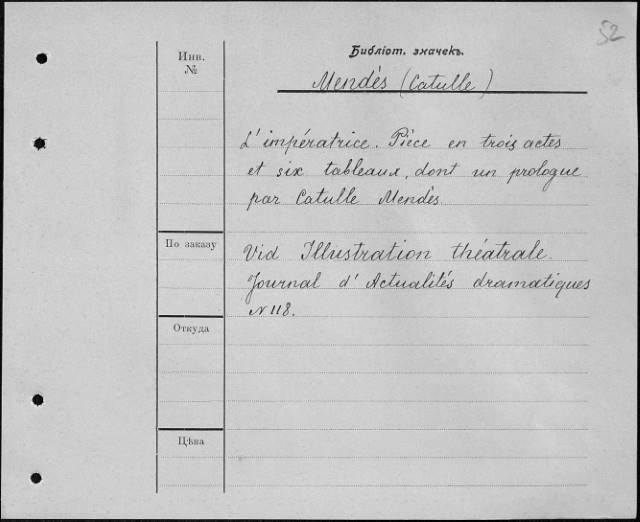 52
Библіот. значекъ.
Инв.
№
Mendès (Catulle)
L'impératrice. Pièce en trois actes
et six tableaux, dont un prologue
par Catulle Mendès
По заказу
Vid Illustration théatrale.
Journal d'Actualités dramatiques
N 118.
Откуда
Цѣна